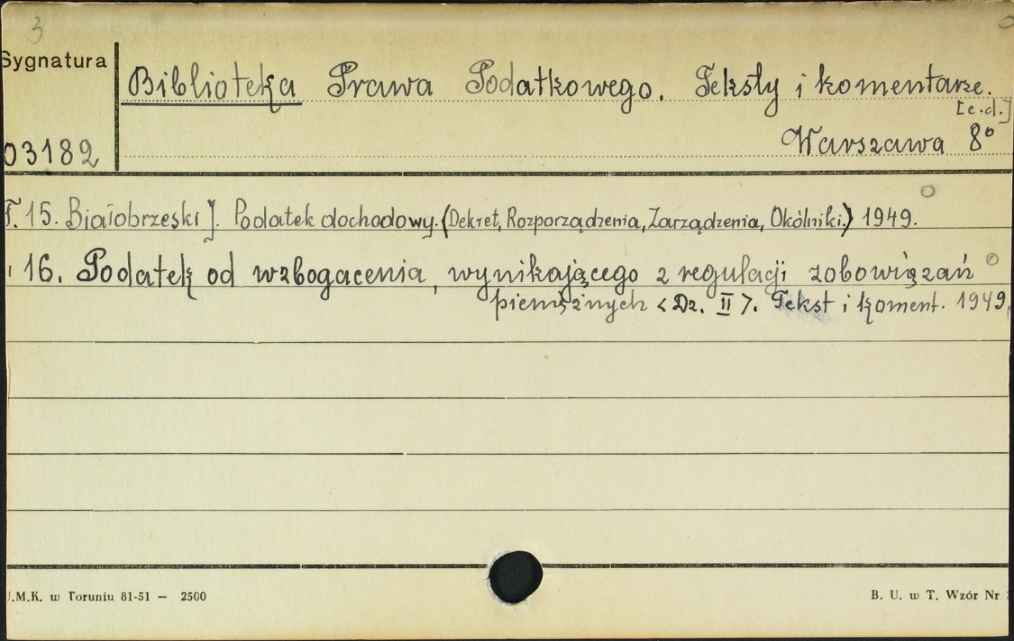 3
Sygnatura
Biblioteka Prawa Podatkowego. Teksty i komentarze.
[c.d.]
03182
Warszawa 8°
T. 15. Białobrzeski J. Podatek dochodowy. (Dekret, Rozporządzenia, Zarządzenia, Okólniki.) 1949.
16. Podatek od wzbogacenia, wynikającego z regulacji zobowiązań
pieniężnych <Dz. II>. Tekst i koment. 1949.
U.M.K. w Toruniu 81-51 — 2500
B. U. w T. Wzór Nr